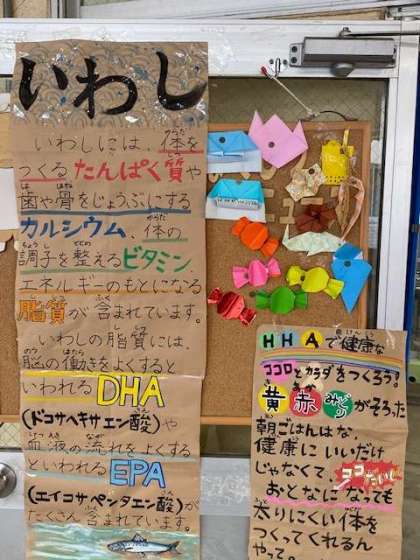 いわし
いわしには、体を
つくるたんぱく質や
歯や骨をじょうぶにする
カルシウム、体の
調子を整えるビタミン、
エネルギーのもとになる
脂質が含まれています。
いわしの脂質には、
脳の働きをよくすると
いわれるDHA
(ドコサヘキサエン酸)や
血液の流れをよくする
といわれるEPA
(エイコサペンタエン酸)が
たくさん含まれています。
HHAで健康な
ココロとカラダをつくろう。
黄赤みどりがそろった
朝ごはんはな、
健康にいいだけ
じゃなくて、ココだいじ
おとなになっても
太りにくい体を
つくってくれるん
やって。